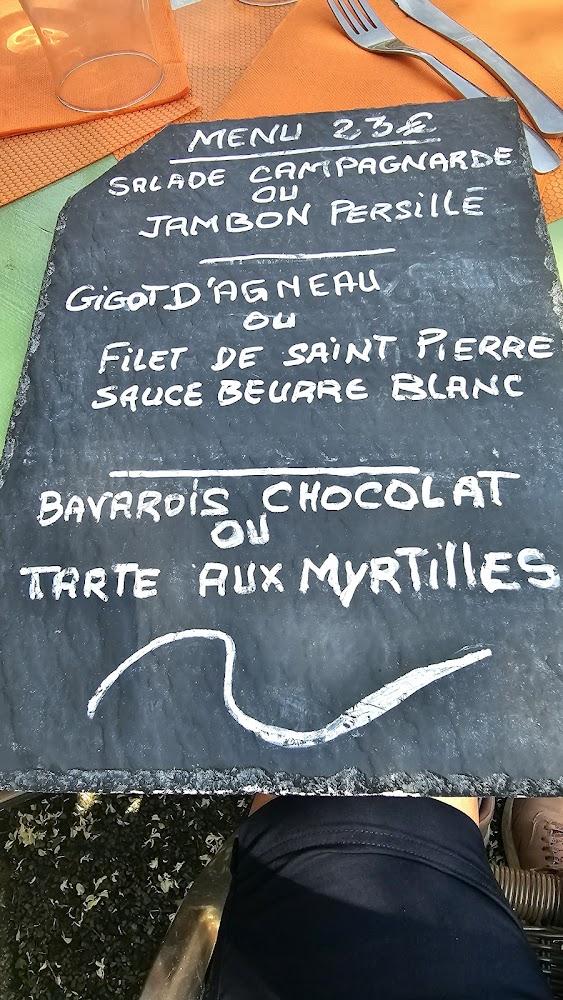 MENU 23€
SALADE CAMPAGNARDE
OU
JAMBON PERSILLÉ
GIGOT D'AGNEAU
OU
FILET DE SAINT PIERRE
SAUCE BEURRE BLANC
BAVAROIS CHOCOLAT
OU
TARTE AUX MYRTILLES